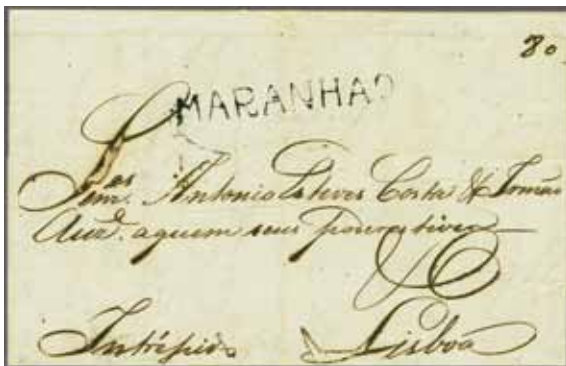 80
MARANHAO
Senres. Antonio Esteves Costa & Irmão
Auze. aquem seus poderes tiver
Intrépido Lisboa